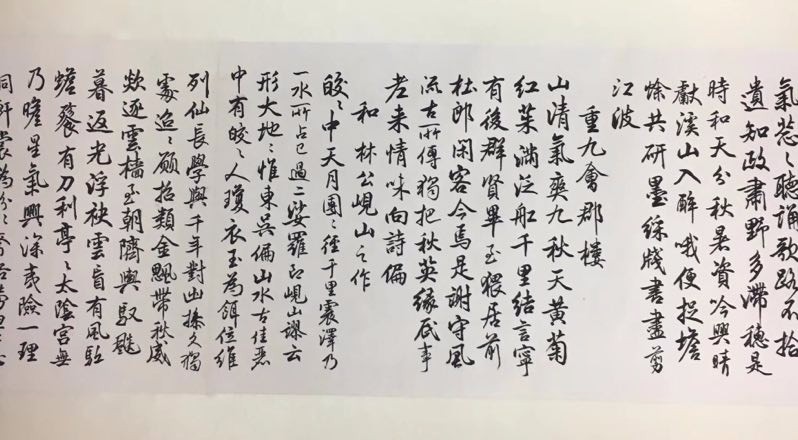 氣葱〻聽誦歌路不拾
遺知政肅野多滯穗是
時和天分秋暑資吟興晴
獻溪山入醉哦便捉蟾
蜍共研墨綵牋書盡剪
江波
重九會郡樓
山清氣爽九秋天黃菊
紅茱滿泛船千里結言寧
有後群賢畢至猥居前
杜郎閑客今焉是謝守風
流古所傳獨把秋英緣底事
老來情味向詩偏
和林公峴山之作
皎〻中天月團〻徑千里震澤乃
一水所占已過二娑羅即峴山謬云
形大地〻惟東吳偏山水古佳麗
中有皎〻人瓊衣玉為餌位維
列仙長學與千年對幽操久獨
處迢〻願招類金飈帶秋威
欻逐雲檣至朝隮輿馭飈
暮返光浮袂雲盲有風駈
蟾餮有刀利亭〻太陰宮無
乃瞻星氣興深夷險一理
洞軒裳為分〻